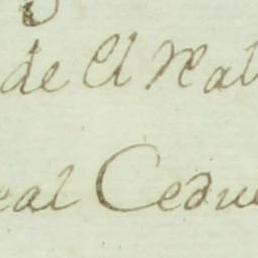 de el Real
eal Cedu